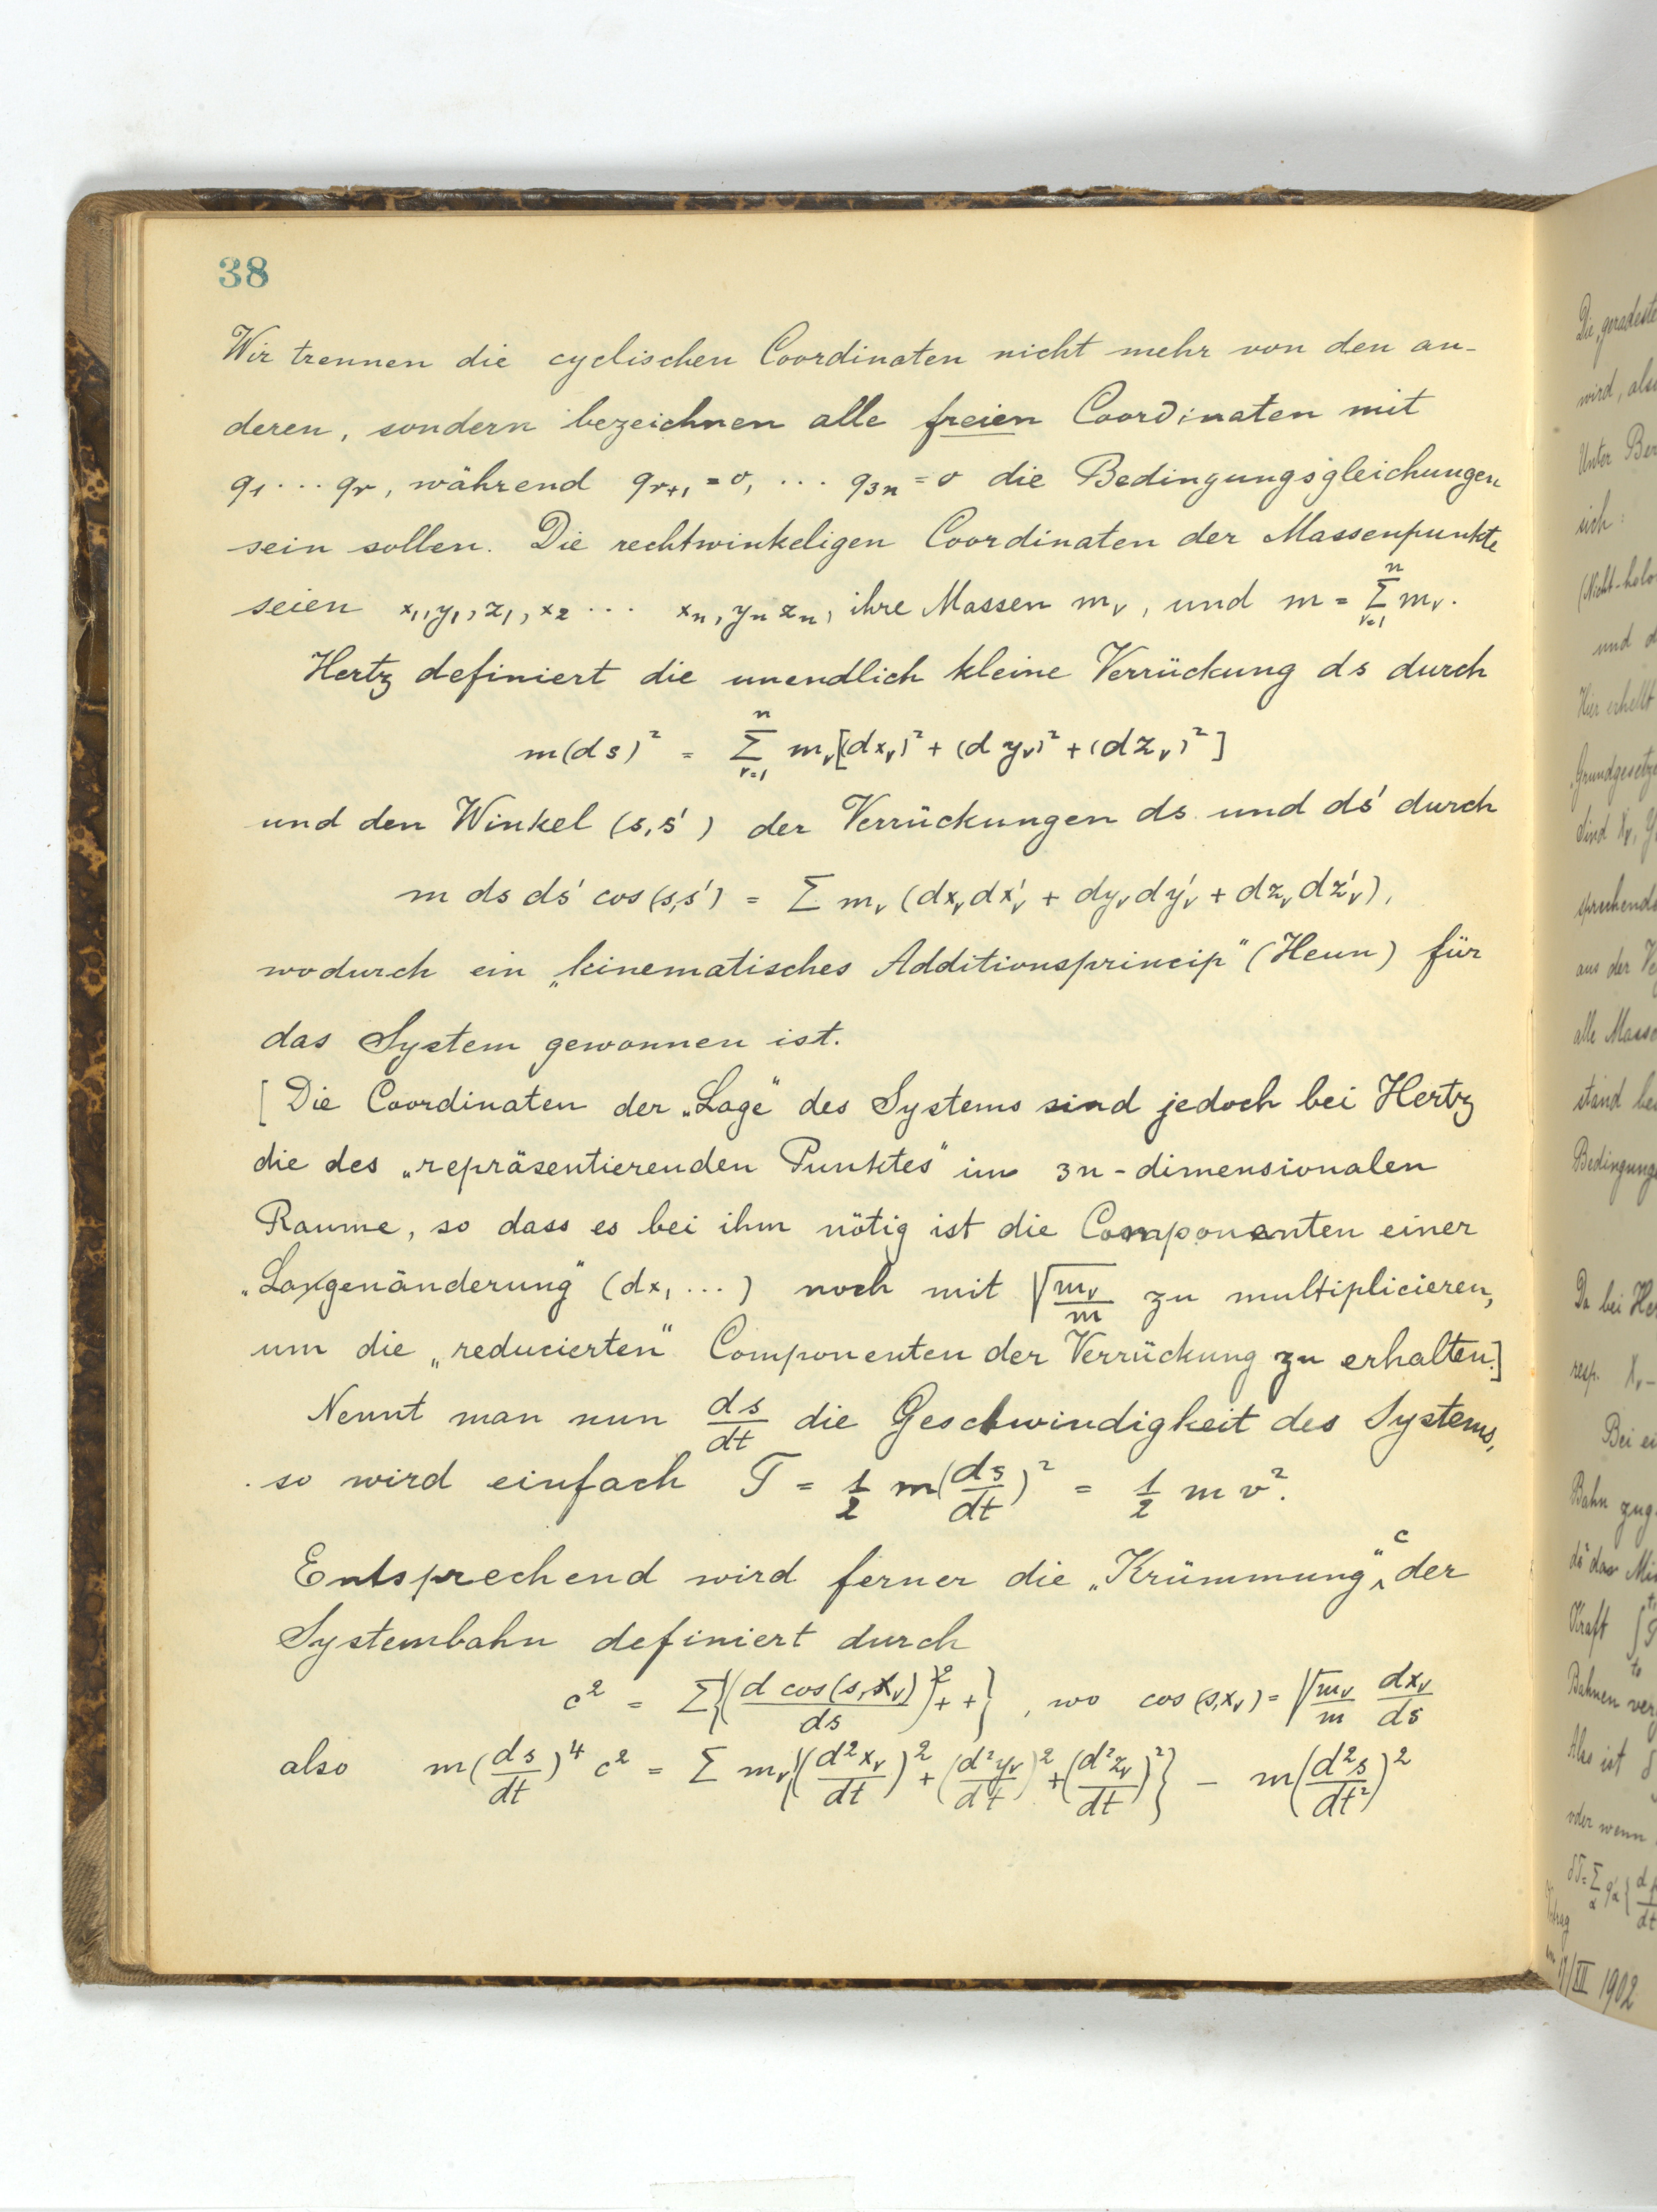 38
Wir trennen die cyclischen Coordinaten nicht mehr von den an-
deren, sondern bezeichnen alle freien Coordinaten mit
q₁ ... qᵣ, während qᵣ₊₁ = 0, ... q₃ₙ = 0 die Bedingungsgleichungen
sein sollen. Die rechtwinkeligen Coordinaten der Massenpunkte
seien x₁, y₁, z₁, x₂ ... xₙ, yₙ zₙ, ihre Massen mᵥ, und m = Σⁿᵥ₌₁ mᵥ.
Hertz definiert die unendlich kleine Verrückung ds durch
m(ds)² = Σⁿᵥ₌₁ mᵥ[(dxᵥ)² + (dyᵥ)² + (dzᵥ)²]
und den Winkel (s,s') der Verrückungen ds und ds' durch
m ds ds' cos(s,s') = Σ mᵥ (dxᵥ dx'ᵥ + dyᵥ dy'ᵥ + dzᵥ dz'ᵥ),
wodurch ein „kinematisches Additionsprincip" (Heun) für
das System gewonnen ist.
[Die Coordinaten der „Lage" des Systems sind jedoch bei Hertz
die des „repräsentierenden Punktes" im 3n-dimensionalen
Raume, so dass es bei ihm nötig ist die Componenten einer
„Lagenänderung" (dx₁ ...) noch mit √(mᵥ/m) zu multiplicieren,
um die „reducierten" Componenten der Verrückung zu erhalten.]
Nennt man nun ds/dt die Geschwindigkeit des Systems,
so wird einfach T = 1/2 m(ds/dt)² = 1/2 m v².
Entsprechend wird ferner die „Krümmung" c der
Systembahn definiert durch
c² = Σ{(d cos(s,xᵥ)/ds)² + +}, wo cos(s,xᵥ) = √(mᵥ/m) dxᵥ/ds
also m(ds/dt)⁴ c² = Σ mᵥ{(d²xᵥ/dt)² + (d²yᵥ/dt)² + (d²zᵥ/dt)²} - m(d²s/dt²)²
Die „geradeste
wird, also
Unter
sich:
und
Hier erhellt
aus der
alle
stand
Da bei
resp.
Bei
Bahn
Kraft
Bahnen
Also ist
oder wenn
1902